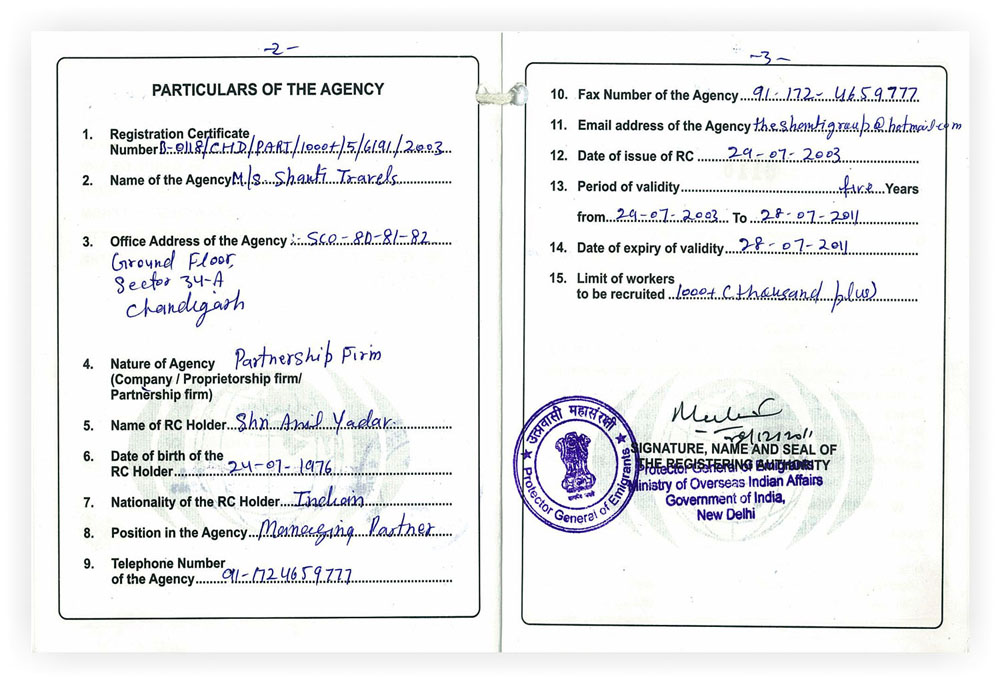 -2-
PARTICULARS OF THE AGENCY
1. Registration Certificate
Number B-0118/CHD/PART/1000+/5/6191/2003
2. Name of the Agency M/s. Shanti Travels
3. Office Address of the Agency :- SCO-80-81-82
Ground Floor,
Sector 34-A
Chandigarh
4. Nature of Agency Partnership Firm
(Company / Proprietorship firm/
Partnership firm)
5. Name of RC Holder Shri Anil Yadav
6. Date of birth of the
RC Holder 24-07-1976
7. Nationality of the RC Holder Indian
8. Position in the Agency Managing Partner
9. Telephone Number
of the Agency 91-1724659777
-3-
10. Fax Number of the Agency 91-172-4659777
11. Email address of the Agency theshantigroup@hotmail.com
12. Date of issue of RC 29-07-2003
13. Period of validity five Years
from 29-07-2003 To 28-07-2011
14. Date of expiry of validity 28-07-2011
15. Limit of workers
to be recruited 1000+ (thousand plus)
SIGNATURE, NAME AND SEAL OF
THE REGISTERING AUTHORITY
Protector General of Emigrants
Ministry of Overseas Indian Affairs
Government of India,
New Delhi
उत्प्रवासी महासंरक्षी
Protector General of Emigrants